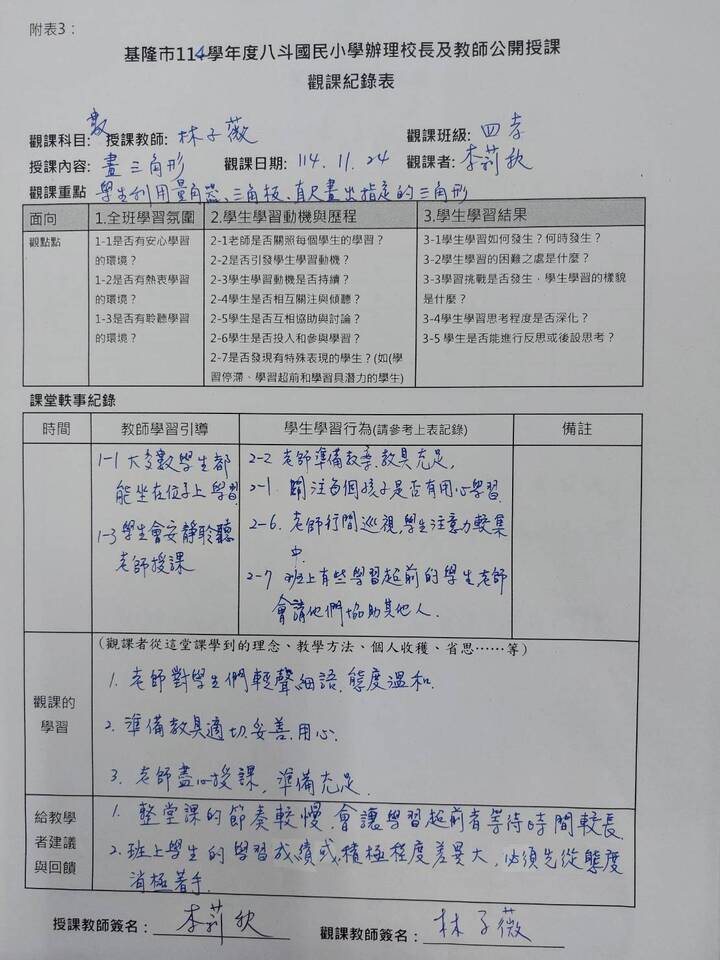 附表3：
基隆市114學年度八斗國民小學辦理校長及教師公開授課
觀課紀錄表
觀課科目: 數 授課教師: 林子薇 觀課班級: 四孝
授課內容: 畫三角形 觀課日期: 114.11.24 觀課者: 李莉秋
觀課重點 學生利用量角器、三角板、直尺畫出指定的三角形
面向 1.全班學習氛圍 2.學生學習動機與歷程 3.學生學習結果
觀點點
1-1是否有安心學習
的環境？
1-2是否有熱衷學習
的環境？
1-3是否有聆聽學習
的環境？
2-1老師是否關照每個學生的學習？
2-2是否引發學生學習動機？
2-3學生學習動機是否持續？
2-4學生是否相互關注與傾聽？
2-5學生是否互相協助與討論？
2-6學生是否投入和參與學習？
2-7是否發現有特殊表現的學生？(如(學
習停滯、學習超前和學習具潛力的學生)
3-1學生學習如何發生？何時發生？
3-2學生學習的困難之處是什麼？
3-3學習挑戰是否發生，學生學習的樣貌
是什麼？
3-4學生學習思考程度是否深化？
3-5 學生是否能進行反思或後設思考？
課堂軼事紀錄
時間 教師學習引導 學生學習行為(請參考上表記錄) 備註
1-1 大多數學生都
能坐在位子上學習
1-3學生會安靜聆聽
老師授課
2-2 老師準備教案.教具充足,
2-1. 關注每個孩子是否有用心學習.
2-6. 老師行間巡視,學生注意力較集
中.
2-7 班上有些學習超前的學生老師
會請他們協助其他人.
觀課的
學習
(觀課者從這堂課學到的理念、教學方法、個人收穫、省思……等)
1. 老師對學生們輕聲細語.態度溫和.
2. 準備教具適切.妥善.用心.
3. 老師盡心授課, 準備充足.
給教學
者建議
與回饋
1. 整堂課的節奏較慢.會讓學習超前者等待時間較長.
2.班上學生的學習成績或積極程度差異大, 必須先從態度
消極著手.
授課教師簽名： 李莉秋 觀課教師簽名： 林子薇